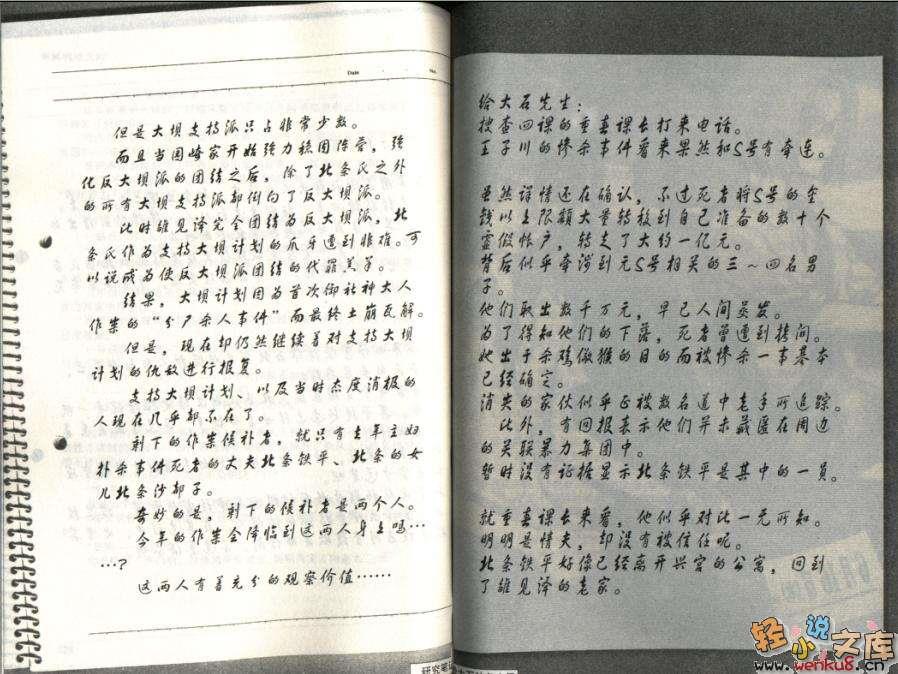 Date
No.
但是大坝支持派只占非常少数。
而且当园崎家开始强力稳固阵营，强
化反大坝派的团结之后，除了北条氏之外
的所有大坝支持派都倒向了反大坝派。
此时雏见泽完全团结为反大坝派，北
条氏作为支持大坝计划的爪牙遭到非难。可
以说成为使反大坝派团结的代罪羔羊。
结果，大坝计划因为首次御社神大人
作祟的“分尸杀人事件”而最终土崩瓦解。
但是，现在却仍然继续着对支持大坝
计划的仇敌进行报复。
支持大坝计划、以及当时态度消极的
人现在几乎都不在了。
剩下的作祟候补者，就只有去年主妇
扑杀事件死者的丈夫北条铁平、北条的女
儿北条沙都子。
奇妙的是，剩下的候补者是两个人。
今年的作祟会降临到这两人身上吗…
…？
这两人有着充分的观察价值……
给大石先生：
搜查四课的重真课长打来电话。
王子川的惨杀事件看来果然和S号有牵连。
虽然详情还在确认，不过死者将S号的金
钱以上限额大量转移到自己准备的数十个
虚假帐户，转走了大约一亿元。
背后似乎牵涉到元S号相关的三～四名男
子。
他们取出数千万元，早已人间蒸发。
为了得知他们的下落，死者曾遭到拷问。
她出于杀鸡儆猴的目的而被惨杀一事基本
已经确定。
消失的家伙似乎正被数名道中老手所追踪。
此外，有回报表示他们并未藏匿在周边
的关联暴力集团中。
暂时没有证据显示北条铁平是其中的一員。
就重真课长来看，他似乎对此一无所知。
明明是情夫，却没有被信任呢。
北条铁平好像已经离开兴宫的公寓，回到
了雏见泽的老家。
轻小说文库
www.wenku8.cn